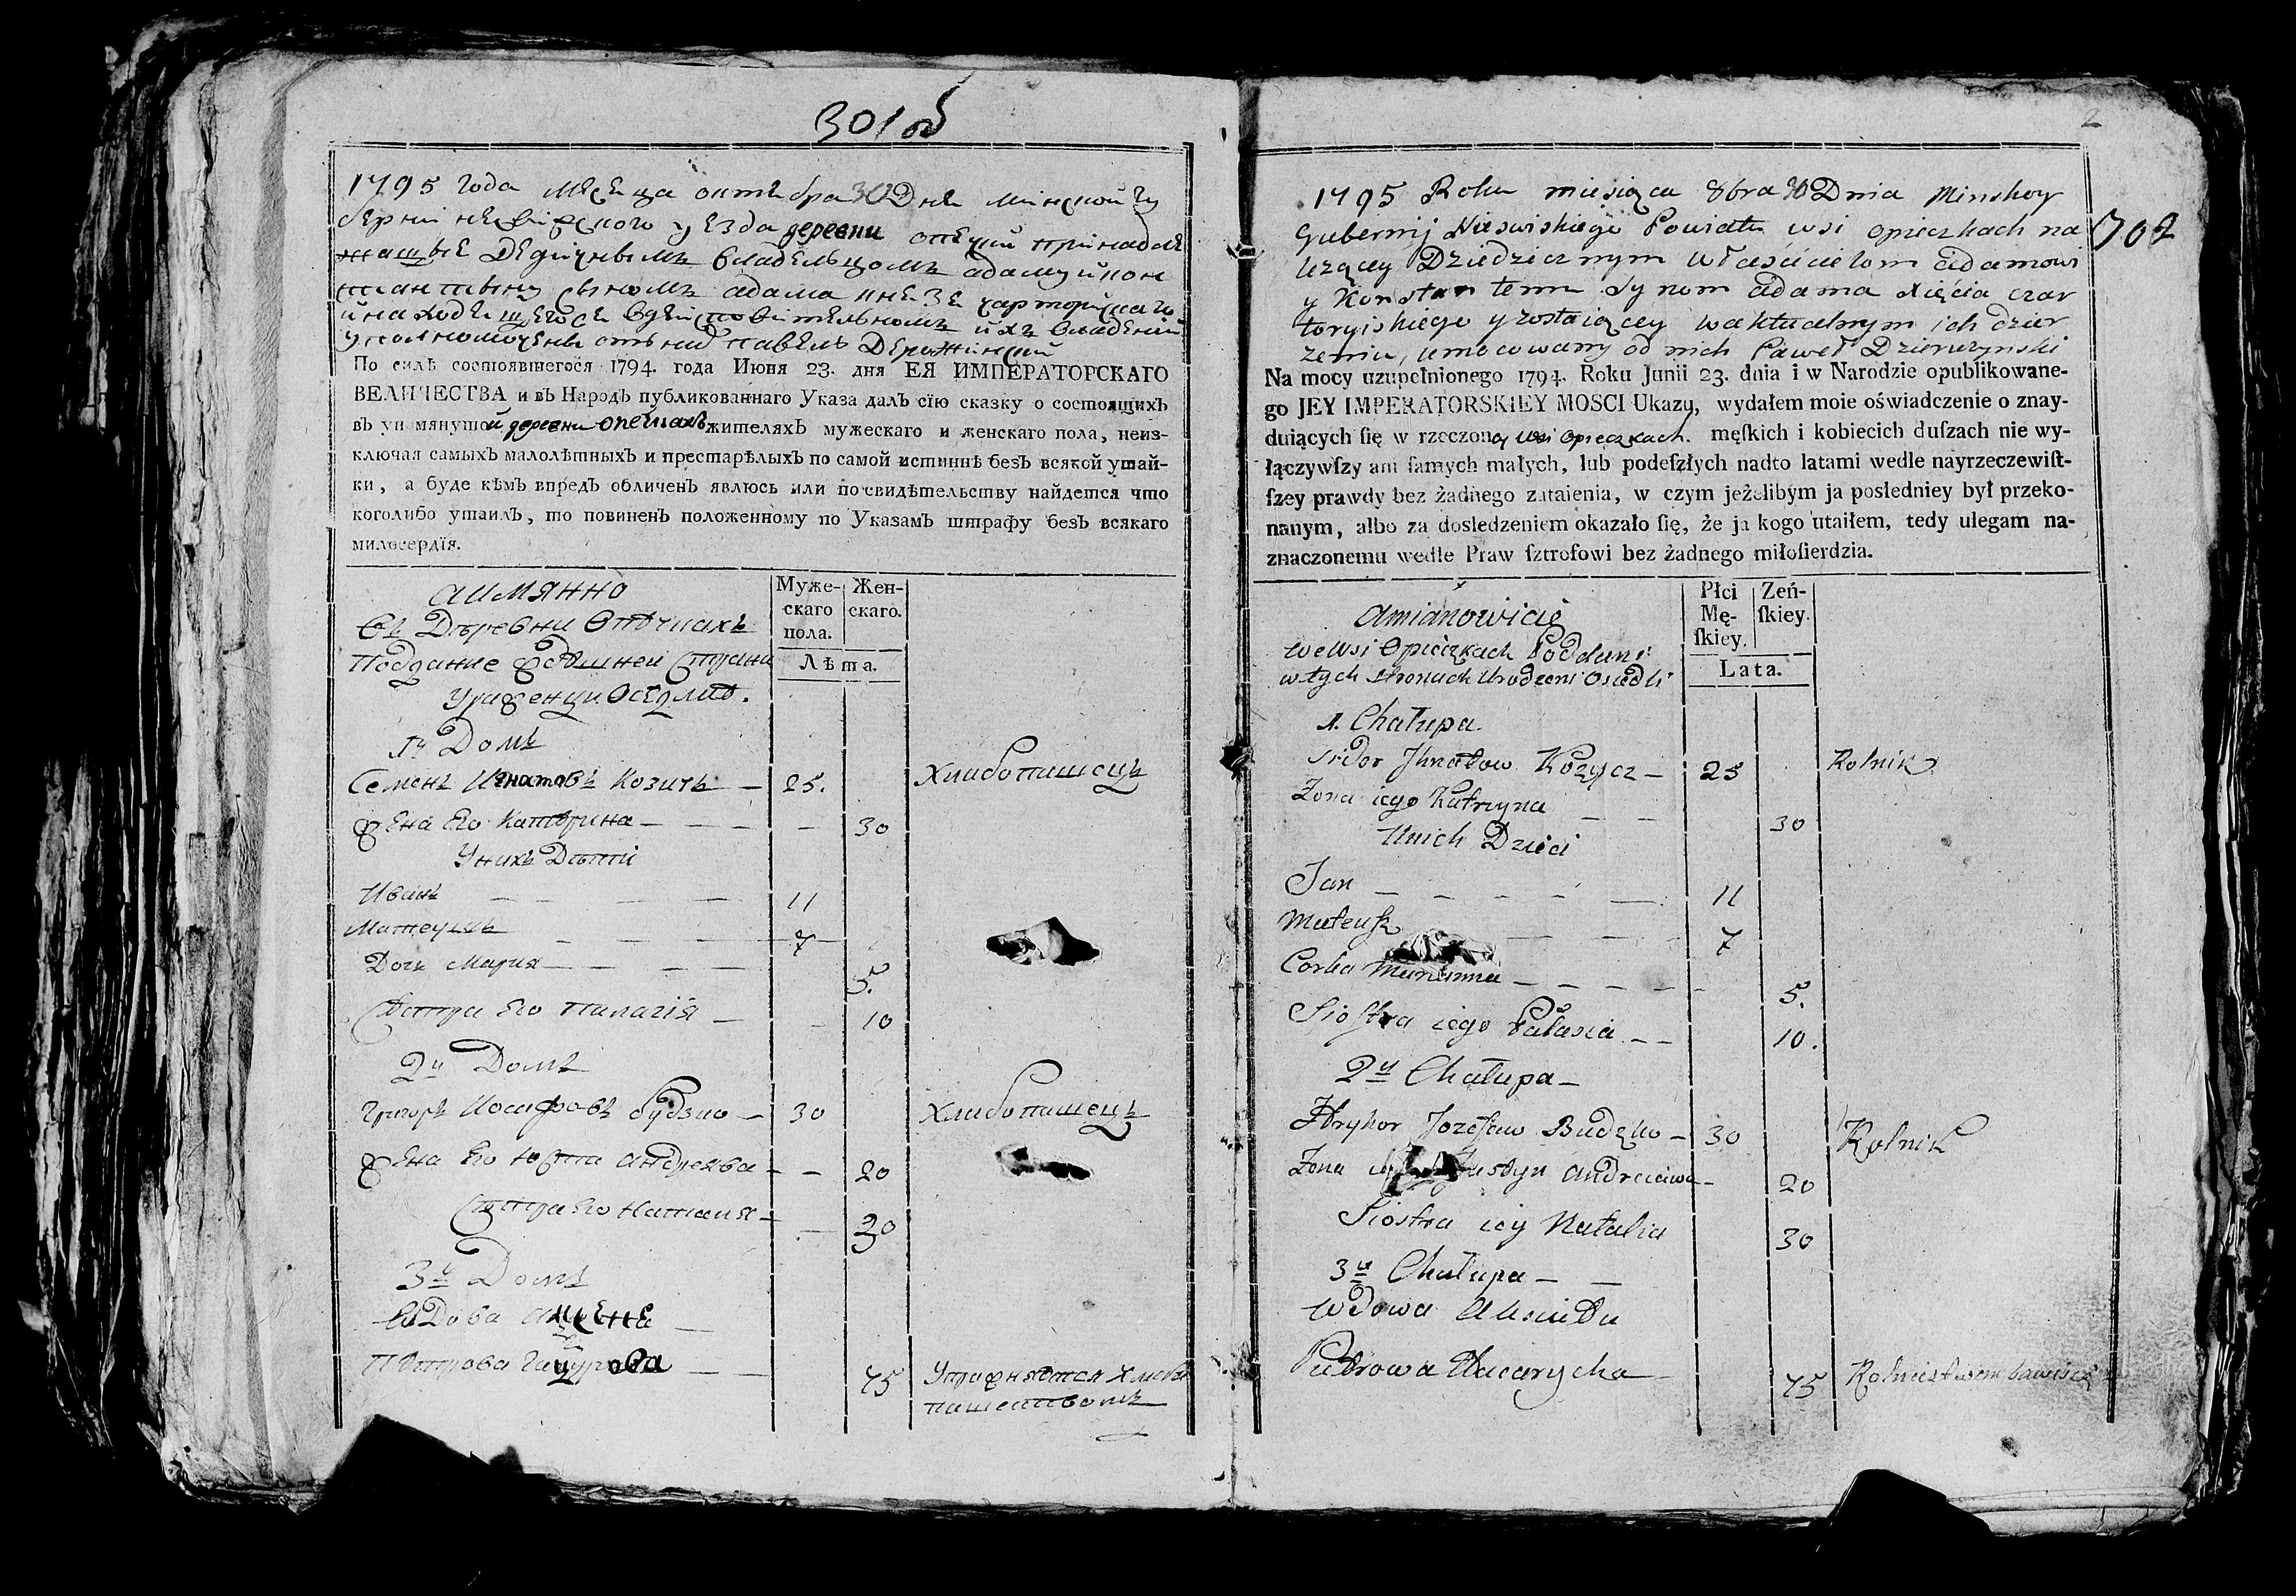 301 об
1795 года месеца октебра 30 Дне минской гу
берніи несвіжского уезда деревни опечки принадле
жащые Дедичнымъ владельцомъ адаму и кон
стантыну сыномъ адама кнезе чарторийскаго
и находещегосе вдействительномъ ихъ владений
уполномоченъ отъ нид павелъ Держинский
По силѣ состоявшегося 1794. года Июня 23. дня ЕЯ ИМПЕРАТОРСКАГО
ВЕЛИЧЕСТВА и въ Народъ публикованнаго Указа далъ сїю сказку о состоящихъ
въ упомянутой деревни опечкахъ жителяхъ мужескаго и женскаго пола, неиз-
ключая самыхъ малолѣтныхъ и престарѣлыхъ по самой истиннѣ безъ всякой утай-
ки, а буде кѣмъ впредъ обличенъ явлюсь или по свидѣтельству найдется что
коголибо утаилъ, то повиненъ положенному по Указамъ штрафу безъ всякаго
милосердїя.
аимянно
въ Деревни Опечкахъ
Поддание
Муже-
скаго
пола.
Жен-
скаго.
Лѣта.
1й Домъ
Семенъ Игнатовъ Козичъ — 25. Хлибопашецъ
Жена Его Катерина — — — — 30
Унихъ Дѣти
Иванъ — — — — 11
Матеушъ — — — — 7
Дочь Мария — — — — 5.
Сестра Его Палагія — — 10
2й Домъ
Григоръ Иосифовъ Будзко — 30 Хлибопашецъ
Жена Его Юста Андреява — — 20
Сестра Его Наталья — — 30
3й Домъ
Вдова
Петрова — — 75 Упражняется хлебо
пашеством
2
702
1795 Roku miesiąca 8bra 30 Dnia Minskoy
Gubernij Nieswiskiego Powiatu wsi opieczkach na
leżącey Dziedzicznym Właścicielom adamowi
y Konstantemu Synom adama Xięcia czar
toryiskiego y zostaiącey waktualnym ich dzier
zeniu, umocowany od nich Paweł Dzierzynski
Na mocy uzupełnionego 1794. Roku Junii 23. dnia i w Narodzie opublikowane-
go JEY IMPERATORSKIEY MOSCI Ukazu, wydałem moie oświadczenie o znay-
duiących się w rzeczoney wsi opieczkach. męſkich i kobiecich duſzach nie wy-
łączywſzy ani ſamych małych, lub podeſzłych nadto latami wedle nayrzeczewiſt-
ſzey prawdy bez żadnego zataienia, w czym jeżelibym ja posledniey był przeko-
nanym, albo za dosledzeniem okazało ſię, że ja kogo utaiłem, tedy ulegam na-
znaczonemu wedle Praw ſztrofowi bez żadnego miłoſierdzia.
Amianowicie
we Wsi Opieczkach Poddani
w tych stronach Urodzeni Osiedli
Płci
Mę-
ſkiey.
Zeń-
ſkiey.
Lata.
1. Chałupa.
Sidor Jhnatow Kozycz — 25 Rolnik
Zona iego Katrzyna — — 30
Unich Dzieci
Jan — — — — — 11
Mateusz — — — 7
Corka Maryanna — — — — — 5.
Siostra iego Pałasia — — 10.
2ga Chałupa —
Hryhor Jozefow Budzko — 30 Rolnik
Zona Justyn Andreiewa — 20
Siostra iey Natalia 30
3a Chałupa — —
Wdowa
Piotrowa — 75 Rolnictwem bawi sie